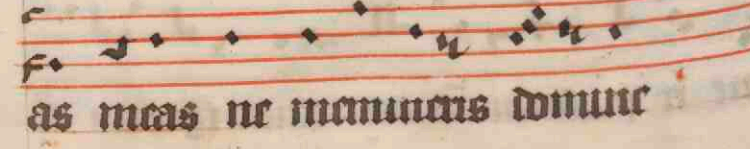 as meas ne memineris domine